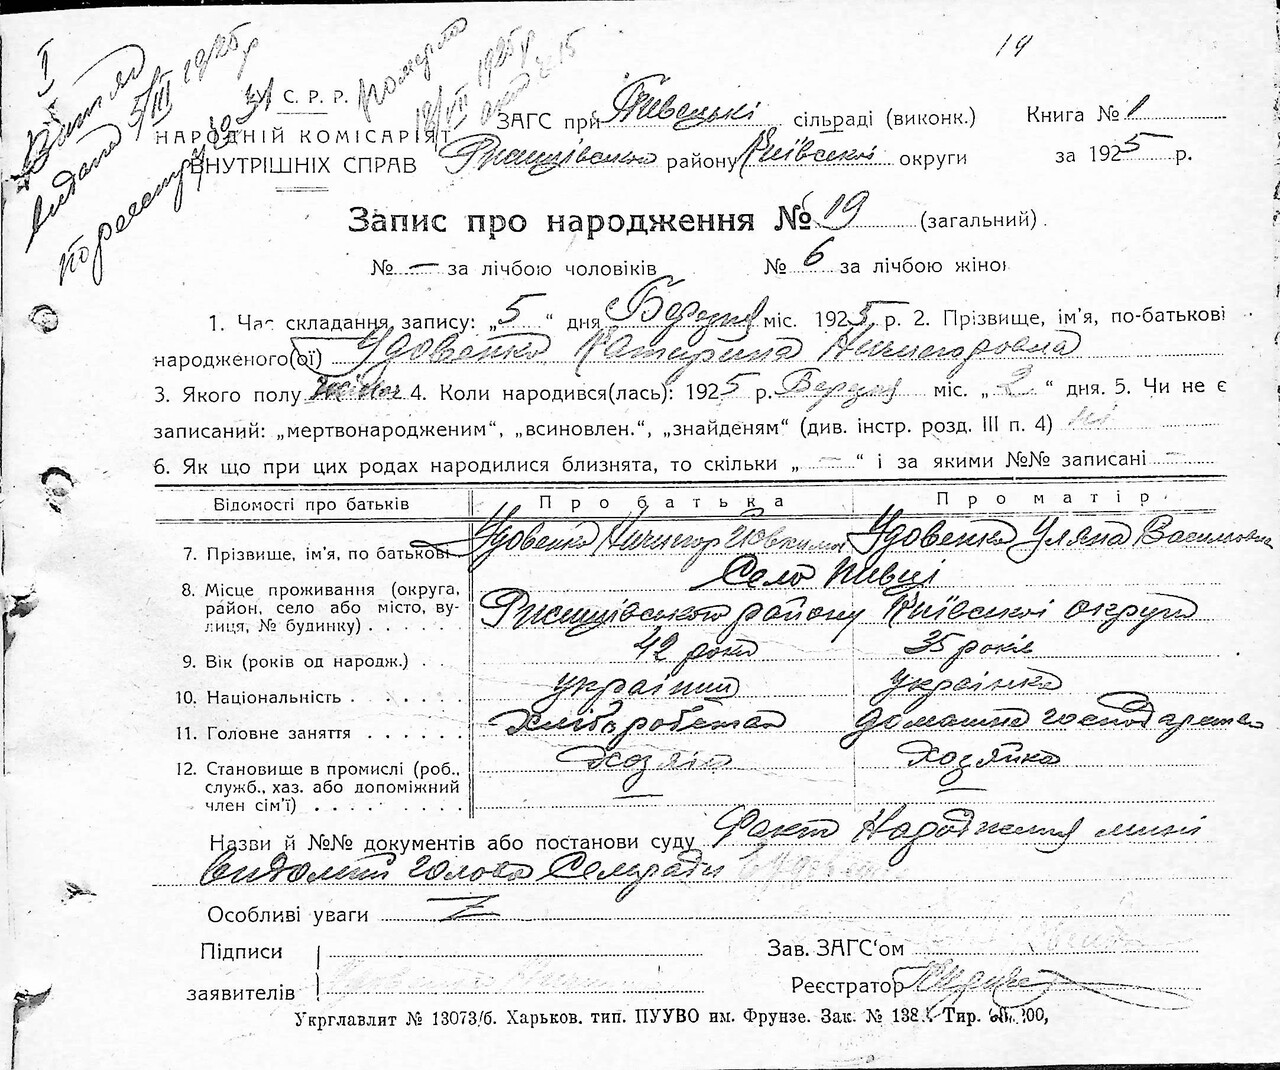 І
Витяг
видано 5/III 1925 р
по реестру №
померла
18/VII 1925 р
акт № 15
19
У. С. Р. Р.
НАРОДНІЙ КОМІСАРІЯТ
ВНУТРІШНІХ СПРАВ
ЗАГС при Пивецькі сільраді (виконк.) Книга № 1
Ржищівського району Київської округи за 1925 р.
Запис про народження № 19 (загальний).
№ — за лічбою чоловіків № 6 за лічбою жіно
1. Час складання запису: „5“ дня Березня міс. 1925 р. 2. Прізвище, ім'я, по-батькові
народженого(ої) Удовенко Катерина Ничипоровна
3. Якого полу жіночої 4. Коли народився(лась): 1925 р. Березня міс. „2“ дня. 5. Чи не є
записаний: „мертвонародженим“, „всиновлен.“, „знайденям“ (див. інстр. розд. III п. 4) ні
6. Як що при цих родах народилися близнята, то скільки „ — “ і за якими №№ записані —
Відомості про батьків Про батька Про матір
7. Прізвище, ім'я, по батькові Удовенко Ничипор Удовенко Уляна Василівна
8. Місце проживання (округа, район, село або місто, вулиця, № будинку) Село Пивці
Ржищівського району Київської округи
9. Вік (років од народж.) 42 роки 35 років
10. Національність українець українка
11. Головне заняття хліборобство домашнє господарство
12. Становище в промислі (роб., служб., хаз. або допоміжний член сім'ї) хозяїн хозяйка
Назви й №№ документів або постанови суду Факт Народження мині
видомий голова Сельради
Особливі уваги Z
Підписи Зав. ЗАГС'ом
заявителів Реєстратор
Укрглавлит № 13073/б. Харьков. тип. ПУУВО им. Фрунзе. Зак. № 138 Тир.